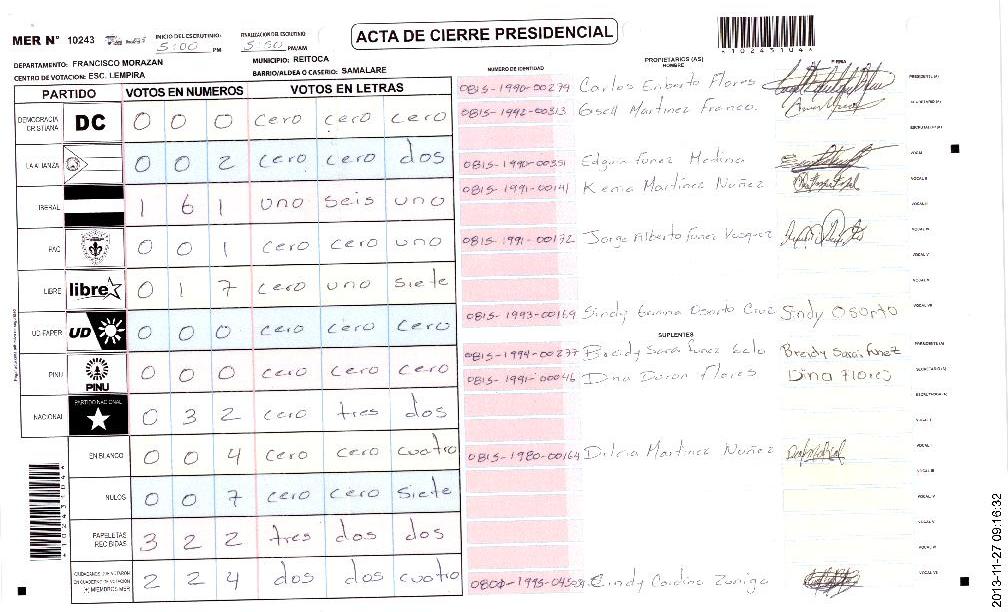 MER N° 10243
INICIO DEL ESCRUTINIO: 5:00 PM
FINALIZACION DEL ESCRUTINIO: 5:50 PM/AM
ACTA DE CIERRE PRESIDENCIAL
DEPARTAMENTO: FRANCISCO MORAZAN
MUNICIPIO: REITOCA
CENTRO DE VOTACION: ESC. LEMPIRA
BARRIO/ALDEA O CASERIO: SAMALARE
*10243104*
PARTIDO VOTOS EN NUMEROS VOTOS EN LETRAS
DEMOCRACIA CRISTIANA DC 0 0 0 cero cero cero
LA ALIANZA 0 0 2 cero cero dos
LIBERAL 1 6 1 uno seis uno
PAC 0 0 1 cero cero uno
LIBRE libre 0 1 7 cero uno siete
UD-FAPER UD 0 0 0 cero cero cero
PINU PINU 0 0 0 cero cero cero
NACIONAL PARTIDO NACIONAL 0 3 2 cero tres dos
EN BLANCO 0 0 4 cero cero cuatro
NULOS 0 0 7 cero cero siete
PAPELETAS RECIBIDAS 3 2 2 tres dos dos
CIUDADANOS QUE VOTARON EN CUADERNO DE VOTACION (+) MIEMBROS MER 2 2 4 dos dos cuatro
*10243104*
NUMERO DE IDENTIDAD PROPIETARIOS (AS) NOMBRE FIRMA
0815-1990-00279 Carlos Eriberto Flores PRESIDENTE(A)
0815-1992-00313 Gisell Martinez Franco SECRETARIO(A)
ESCRUTADOR(A)
0815-1990-00351 Edguin Funez Medina VOCAL I
0815-1991-00141 Kenia Martinez Nuñez VOCAL II
VOCAL III
0815-1991-00172 Jorge Alberto Funez Vasquez VOCAL IV
VOCAL V
VOCAL VI
0815-1993-00169 Sindy Osorto Cruz Sindy Osorto VOCAL VII
SUPLENTES
0815-1994-00277 Breidy Sarai Funez Breidy Sarai Funez PRESIDENTE(A)
0815-1991-00046 Dina Duron Flores Dina Flores SECRETARIO(A)
ESCRUTADOR(A)
VOCAL I
0815-1980-00164 Dilcia Martinez Nuñez VOCAL II
VOCAL III
VOCAL IV
VOCAL V
VOCAL VI
Cindy Zuniga VOCAL VII
2013-11-27 09:16:32